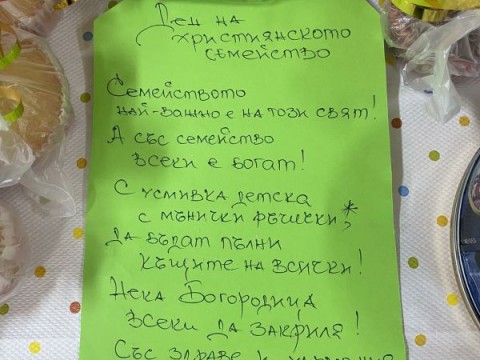 Ден на
християнското
семейство
Семейството
най-важно е на този свят!
А със семейство
всеки е богат!
С усмивка детска
с мънички ръчички,*
да бъдат пълни
къщите на всички!
Нека Богородица
всеки да закриля!
Със здраве и